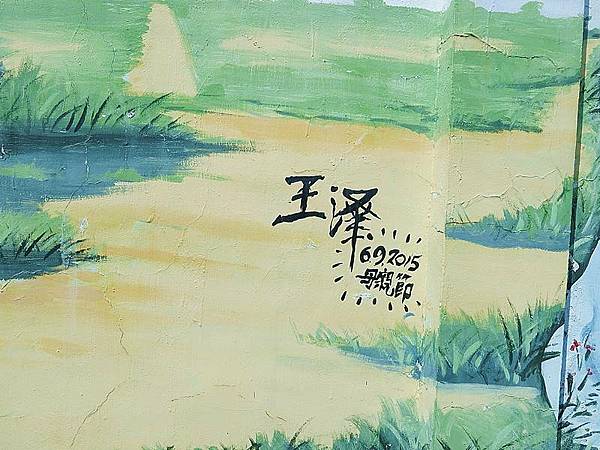 王澤
6.9.2015
母親節